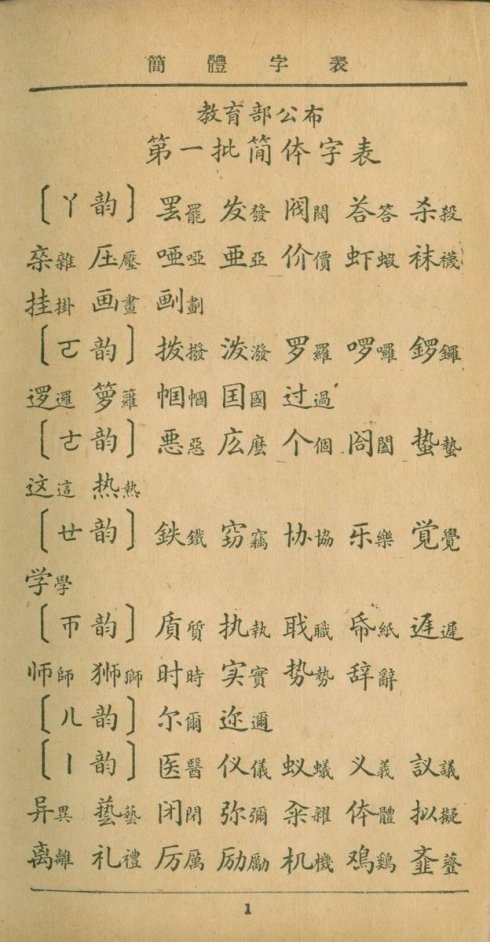 簡體字表
教育部公布
第一批简体字表
〔ㄚ韵〕 罢罷 发發 阀閥 荅答 杀殺
杂雜 压壓 唖啞 亜亞 价價 虾蝦 袜襪
挂掛 画畫 㓰劃
〔ㄛ韵〕 拨撥 泼潑 罗羅 啰囉 锣鑼
逻邏 箩籮 帼幗 囯國 过過
〔ㄜ韵〕 悪惡 庅麼 个個 閤闔 蛰蟄
这這 热熱
〔ㄝ韵〕 鉄鐵 窃竊 协協 乐樂 覚覺
学學
〔ㄭ韵〕 貭質 执執 耺職 帋紙 遅遲
师師 狮獅 时時 实實 势勢 辞辭
〔ㄦ韵〕 尔爾 迩邇
〔ㄧ韵〕 医醫 仪儀 蚁蟻 义義 议議
异異 藝藝 闭閉 弥彌 籴糴 体體 拟擬
离離 礼禮 厉厲 励勵 机機 鸡鷄 齑虀
1